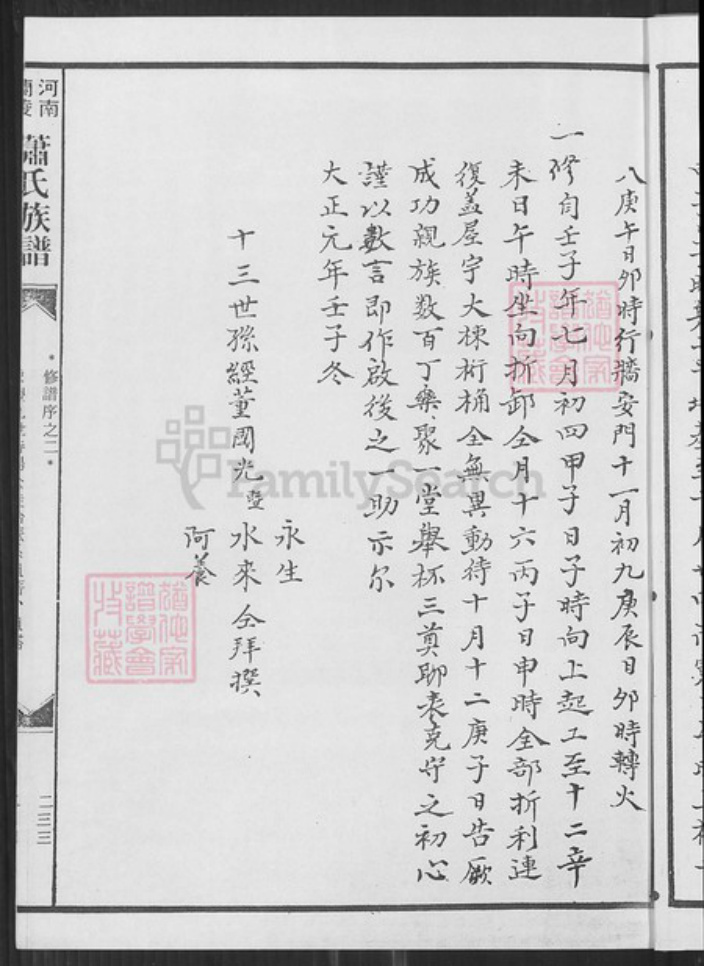 八庚午日卯時行牆安門十一月初九庚辰日卯時轉火
一修自壬子年七月初四甲子日子時向上起工至十二辛
未日午時坐向折卸仝月十六丙子日申時全部折利連
復蓋屋宇大棟桁桷全無異動待十月十二庚子日告厥
成功親族數百丁樂聚一堂舉杯三奠聊表克守之初心
謹以數言即作啟後之一助示尔
大正元年壬子冬
永生
十三世孫經董國光暨水來仝拜撰
阿養
河南
蘭陵
蕭氏族譜
•修譜序之二•
二三三
FamilySearch